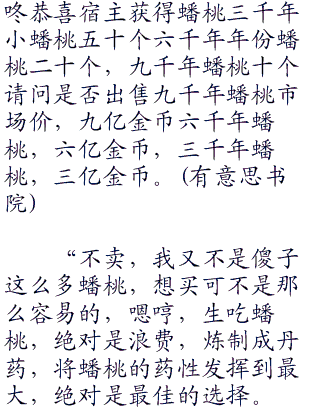 咚恭喜宿主获得蟠桃三千年
小蟠桃五十个六千年年份蟠
桃二十个，九千年蟠桃十个
请问是否出售九千年蟠桃市
场价，九亿金币六千年蟠
桃，六亿金币，三千年蟠
桃，三亿金币。(有意思书
院)
“不卖，我又不是傻子
这么多蟠桃，想买可不是那
么容易的，嗯哼，生吃蟠
桃，绝对是浪费，炼制成丹
药，将蟠桃的药性发挥到最
大，绝对是最佳的选择。